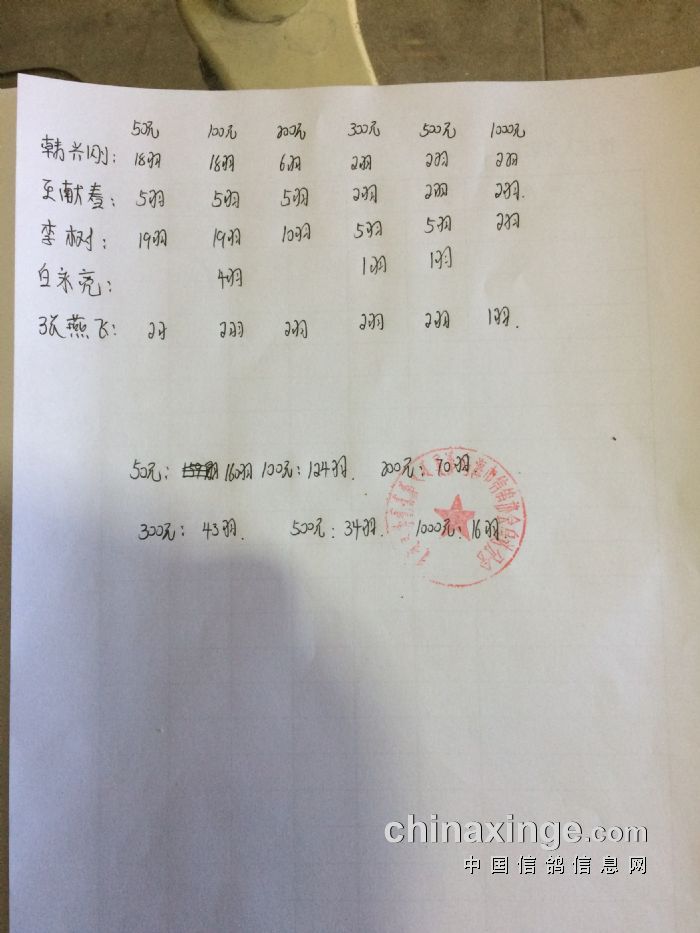 50元 100元 200元 300元 500元 1000元
韩兴刚: 18羽 18羽 6羽 2羽 2羽 2羽
王献春: 5羽 5羽 5羽 2羽 2羽 2羽.
李树: 19羽 19羽 10羽 5羽 5羽 2羽
白永亮: 4羽 1羽 1羽
张燕飞: 2羽 2羽 2羽 2羽 2羽 1羽.
50元: 160羽 100元: 124羽. 200元: 70羽.
300元: 43羽. 500元: 34羽. 1000元: 16羽
chinaxinge.com
中国信鸽信息网